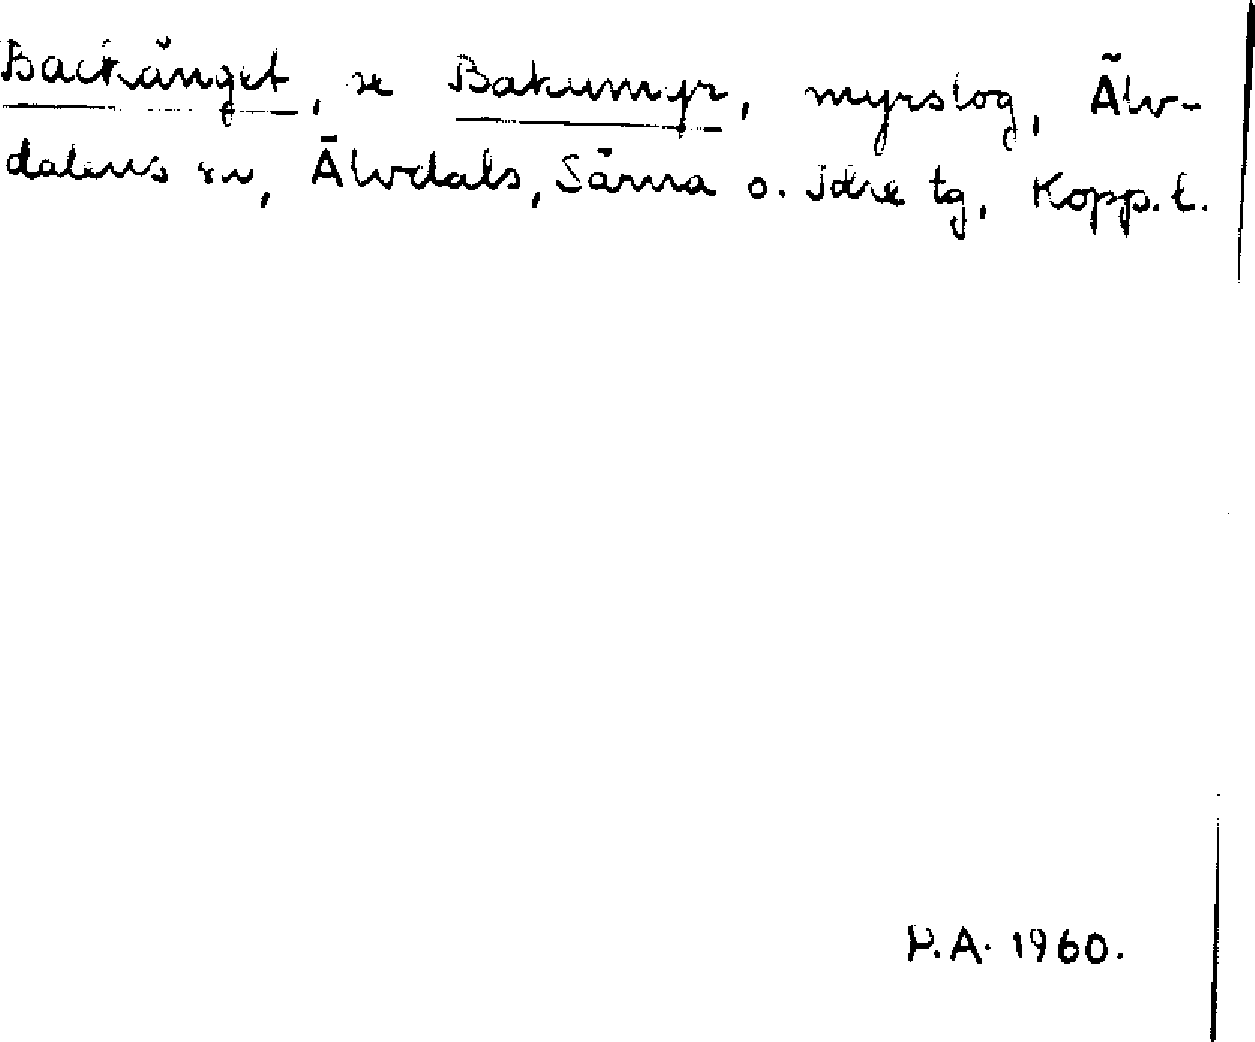 Backänget, se Bakumyr, myrslog, Älv-
dalens sn, Älvdals, Särna o. Idre tg, Kopp. l.
P.A. 1960.